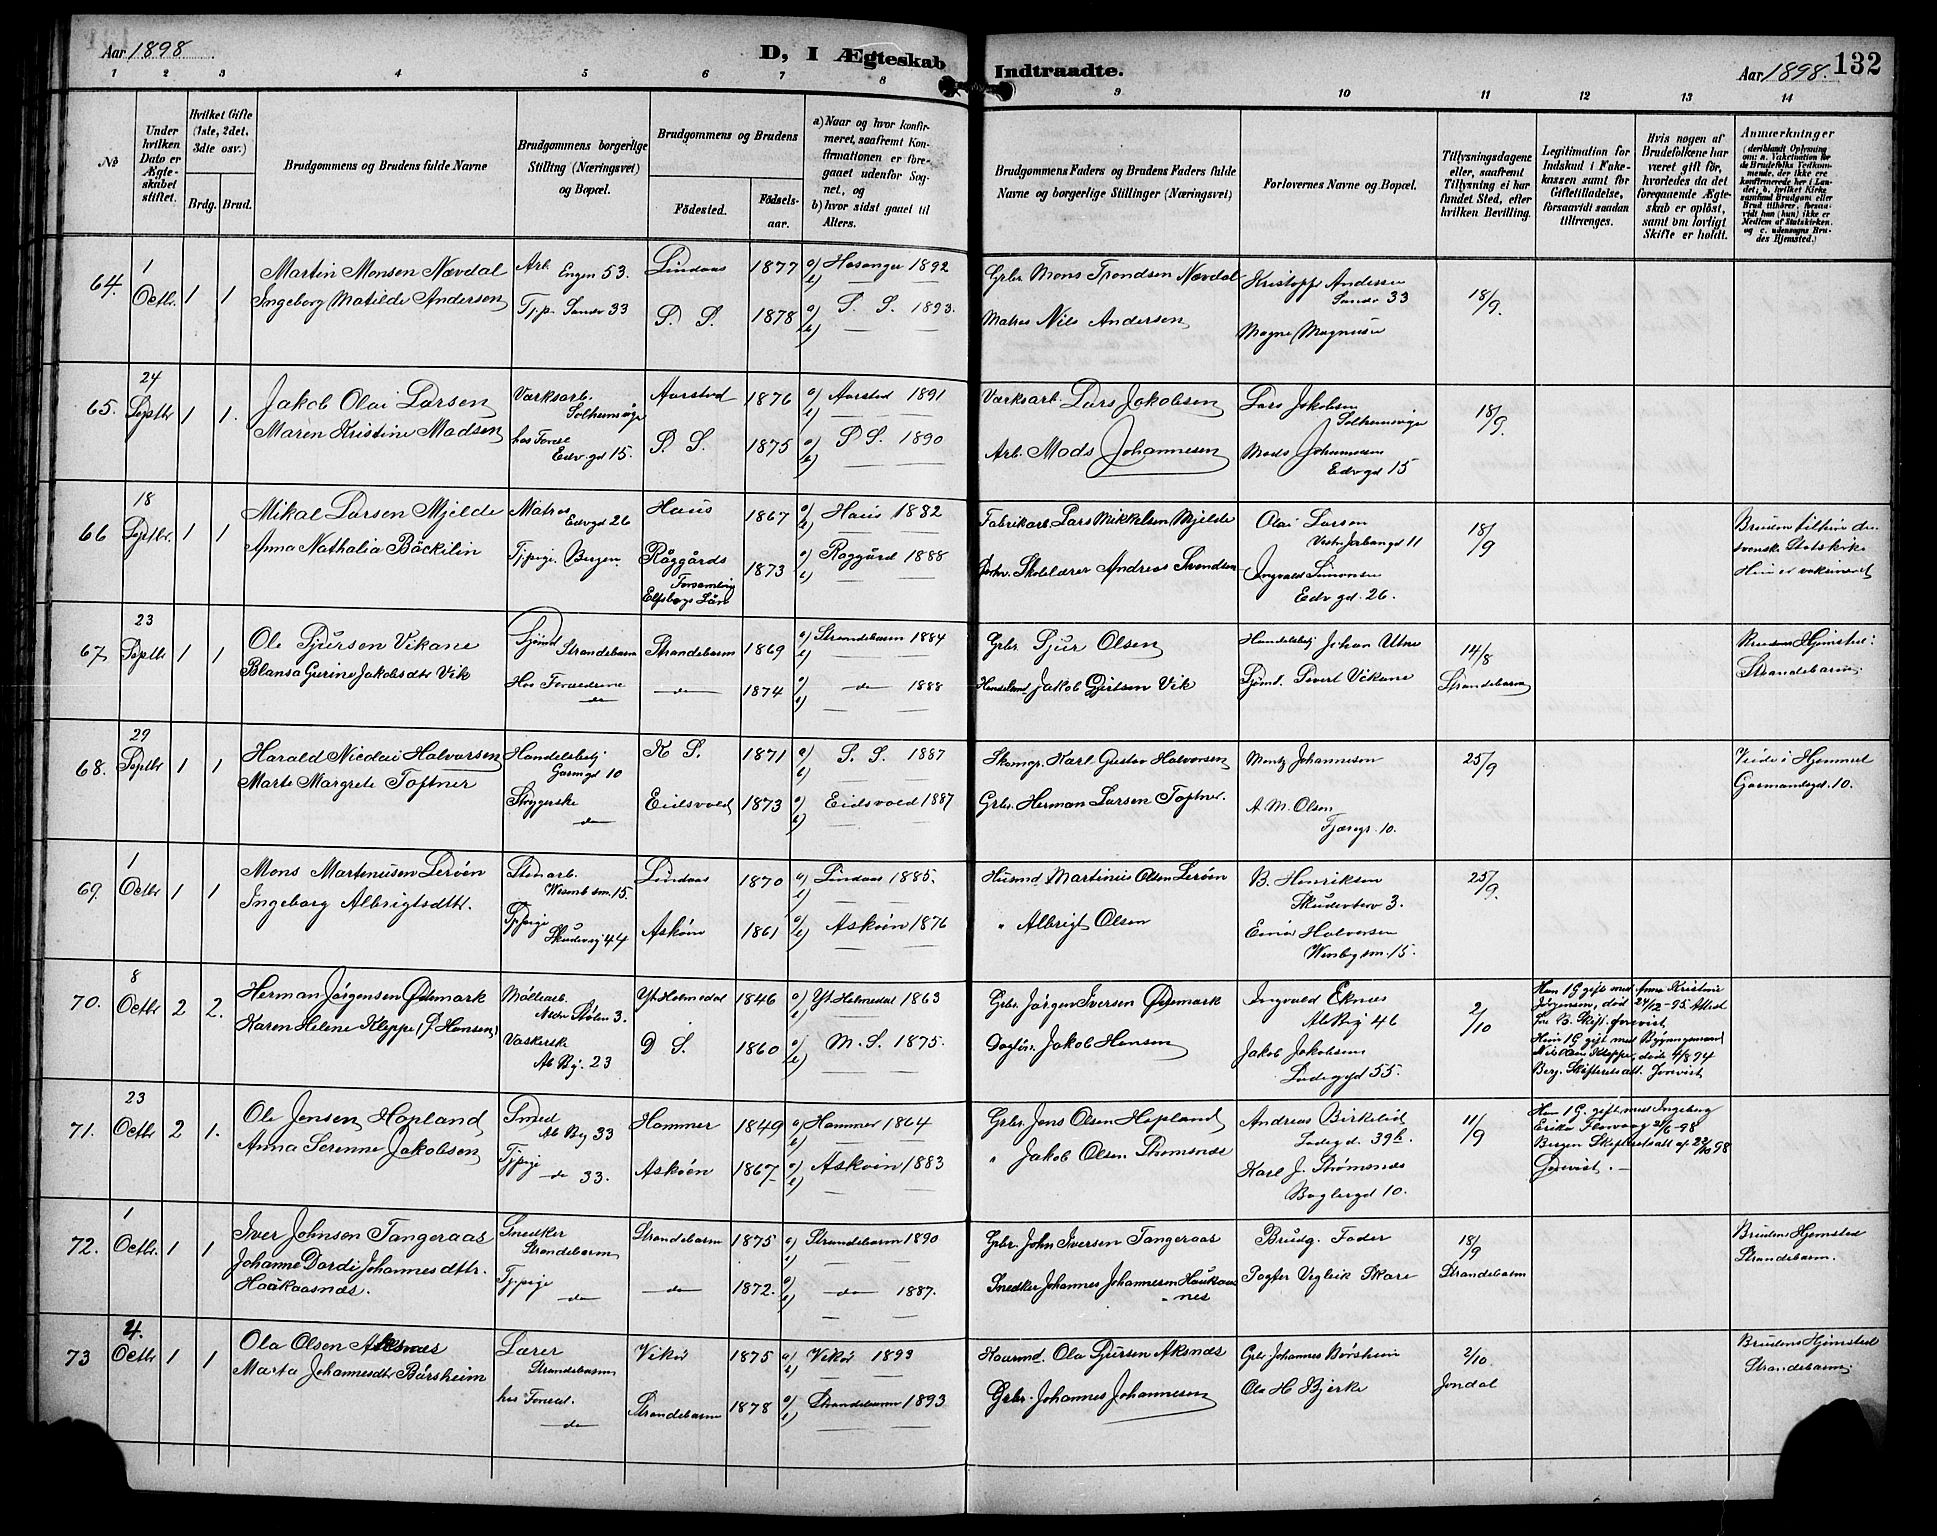 Aar 1898
D, I Ægteskab Indtraadte.
Aar 1898. 132
1 2 3 4 5 6 7 8 9 10 11 12 13 14
No
Under hvilken Dato er Ægteskabet stiftet.
Hvilket Gifte (1ste, 2det, 3dte osv.)
Brdg. Brud.
Brudgommens og Brudens fulde Navne
Brudgommens borgerlige Stilling (Næringsvei) og Bopæl.
Brudgommens og Brudens
Födested. Födselsaar.
a) Naar og hvor konfirmeret, saafremt Konfirmationen er foregaaet udenfor Sognet, og
b) hvor sidst gaaet til Alters.
Brudgommens Faders og Brudens Faders fulde Navne og borgerlige Stillinger (Næringsvei)
Forlovernes Navne og Bopæl.
Tillysningsdagene eller, saafremt Tillysning ei har fundet Sted, efter hvilken Bevilling.
Legitimation for Indskud i Enkekassen samt för Giftetilladelse, forsaavidt saadan tiltrænges.
Hvis nogen af Brudefolkene har været gift för, hvorledes da det foregaaende Ægteskab er oplöst, samt om lovligt Skifte er holdt.
Anmærkninger (deriblandt Oplysning om: a. Vaksination for de Brudefolks Vedkommende, der ikke ere konfirmerede her i Landet; b. hvilket Kirkesamfund Brudgom eller Brud tilhörer, forsaavidt han (hun) ikke er Medlem af Statskirken, og c. udensogns Brudes Hjemsted.)
64. 1 Octbr. 1 1
Martin Monsen Nævdal
Ingeborg Matilde Andersen
Arb. Engen 53.
Tjp. Sandv 33
Lindaas 1877 a) Hosanger 1892
D. S. 1878 a) D. S. 1893.
Grbr. Mons Trondsen Nævdal
Matros Nils Andersen
Kristoffer Andersen Sandv 33
Magne Magnusen
18/9.
65. 24 Septbr 1 1.
Jakob Olai Larsen
Maren Kristine Madsen
Værksarb. Solheimsvig
hos Forælde Edv.gd 15.
Aarstad 1876 a) Aarstad 1891
D. S. 1875 a) D S. 1890
Værksarb Lars Jakobsen
Arb. Mads Johannesen
Lars Jakobsen Solheimsvig
Mads Johannesen Edv gd 15
18/9.
66 18 Septbr. 1 1
Mikal Larsen Mjelde
Anna Nathalia Bäckilin
Matros Edvgd 26
Tjpige. Bergen.
Haus 1867 a) Haus 1882
Råggårds Forsamling Elfsborgs Län 1873 a) Raggård 1888
Fabrikarb. Lars Mikkelsen Mjelde
Skolelærer Andreas Svendsen
Olai Larsen 11
Ingvald Simonsen Edv gd. 26.
18/9
Bruden tilhör den svenske Statskirke
Hun er vaksineret
67 23 Septbr 1 1
Ole Sjursen Vikane
Blansa Gurine Jakobsdtr Vik
Sjömd Strandebarm
Hos Forældrene do
Strandebarm 1869 a) Strandebarm 1884
do 1874 a) do 1888
Grbr. Sjur Olsen
Handelsmd Jakob Gjertsen Vik
Handelsbetj Johan Utne
Sjömd. Sivert Vikane
14/8 Strandebarm
Brudens Hjemsted: Strandebarm.
68. 29 Septbr 1 1
Harald Nicolai Halvorsen
Marte Margrete Toftner
Handelsbetj Garmgd 10
Strygerske do
K S. 1871 a) S. S. 1887
Eidsvold 1873 a) Eidsvold 1887
Skomgr. Karl Gustav Halvorsen
Grbr. Herman Larsen Toftner.
Johannesen
A. M. Olsen Fjæregr. 10.
25/9
Viede i Hjemmet Garmandsgd. 10.
69. 1 Octbr 1 1
Mons Martinusen Leröen
Ingeborg Albrigtsdtr.
Stenarb. Wesenb sm. 15.
Tjpige Skudevig 44
Lindaas 1870 a) Lindaas 1885.
Asköen 1861 a) Asköen 1876
Husmd Martinus Olsen Leröen
" Albrigt Olsen
B. Henriksen 3.
Halvorsen 15.
25/9.
70. 8 Octbr 2 2.
Herman Jörgensen Ödemark
Karen Helene Kleppe (f. Hansen)
Möllearb. Stölen 3.
Vaskersk Al. Bg. 23
Yt. Holmedal 1846 a) Yt. Holmedal 1863
D S. 1860 a) M. S. 1875.
Grbr. Jörgen Iversen Ödemark
Dagar. Jakob Hansen
Ingvald Eknes Al. Bg 46
Jakob Jakobsen Ladegd 55.
2/10
Han 1 G gift med Anne Kristine Jörgensen, död 24/12-95. Attest fra B. Skift. forevist.
Hun 1 G gift med Bygningsmand Nicolai Kleppe, död 4/8 94
Berg. Skifteretsatt. forevist
71. 23 Octbr 2 1.
Ole Jensen Hopland
Anna Serenne Jakobsen
Smed Al. Bg 33
Tjpige do 33.
Hammer 1849 a) Hammer 1864
Asköen 1867 a) Asköen 1883
Grbr. Jens Olsen Hopland
" Jakob Olsen Strømsnæs
Andreas Birkelid Ladegd. 39b.
Karl J. Strømsnæs Baglergd 10.
11/9
Han 1 G. gift med Ingeborg Erika 21/6-98
Bergen Skifteretsatt af 22/10 98 Forevist.
72. 1 Octbr. 1 1
Iver Johnsen Tangeraas
Johanne Dordi Johannesdttr. Haukaasnæs.
Snedker Strandebarm
Tjpige do
Strandebarm 1875 a) Strandebarm 1890
do 1872. a) do 1887.
Grbr. John Iversen Tangeraas
Snedker Johannes Johannesen Haukaasnes
Brudg. Fader
Vegleik Skare
18/9 Strandebarm
Brudens Hjemsted Strandebarm.
73 4. Octbr 1 1
Ola Olsen Aksnæs
Marta Johannesdtr Bårsheim
Lærer Strandebarm
hos Foræld. do
Vikör 1875 a) Vikör 1893
Strandebarm 1878 a) Strandebarm 1893
Ola Sjursen Aksnæs
Grbr. Johannes Johannesen
Gbr Johannes Børsheim
Ola H Bjerke
2/10. Jondal
Brudens Hjemsted Strandebarm.